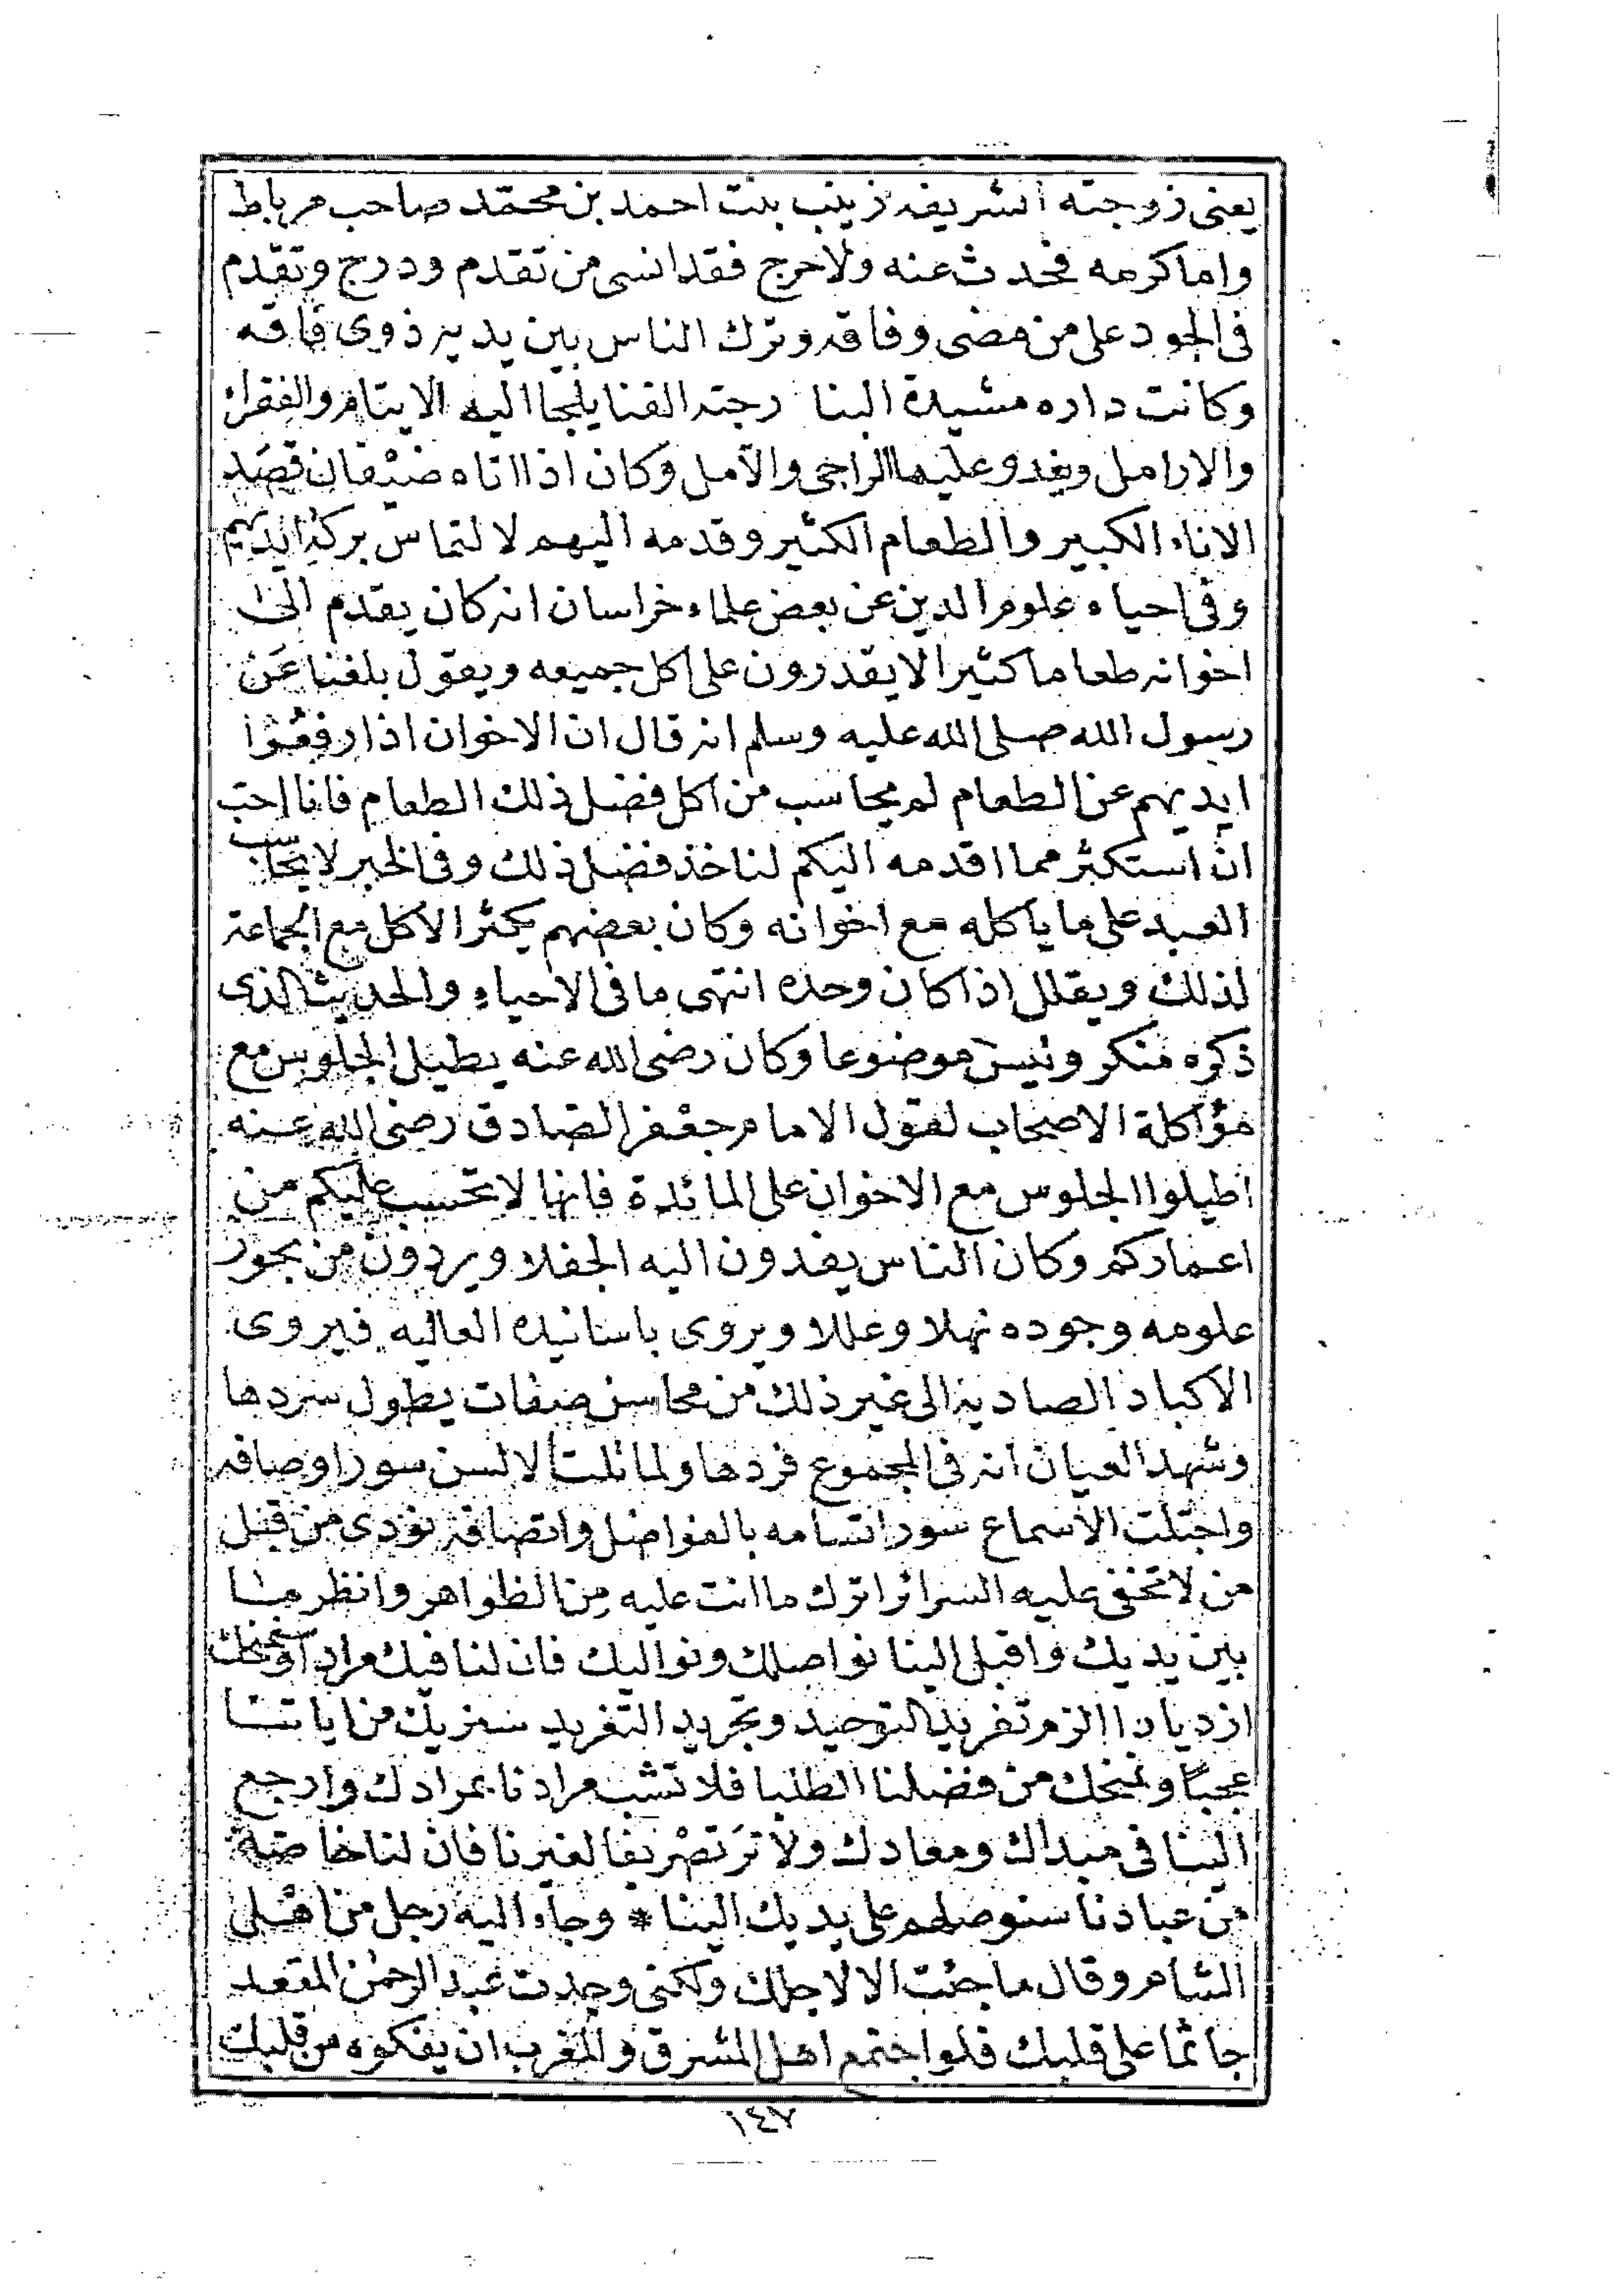 يعنى زوجته الشريفه زينب بنت احمد بن محمّد صاحب مرباط
واما كرمه فحدث عنه ولا حرج فقد انسى من تقدم ودرج وتقدم
فى الجود على من مضى وفاقه وترك الناس بين يديه ذوى فاقه
وكانت داره مشيدة البنا رحبته الفنا يلجا اليه الايتام والفقراء
والارامل ويغدو عليها الراجى والآمل وكان اذا اتاه ضيفان قصد
الاناء الكبير والطعام الكثير وقدمه اليهم لالتماس بركة ايديهم
وفى احياء علوم الدين عن بعض علماء خراسان انه كان يقدم الى
اخوانه طعاما كثيرا لا يقدرون على اكل جميعه ويقول بلغنا عَن
رسول الله صلى الله عليه وسلم انه قال ان الاخوان اذا رفعُوا
ايديهم عن الطعام لم يحاسب من اكل فضل ذلك الطعام فانا احب
ان استكثر مما اقدمه اليكم لناخذ فضل ذلك وفى الخبر لا يحاسب
العبد على ما ياكله مع اخوانه وكان بعضهم يكثر الاكل مع الجماعة
لذلك ويقلل اذا كان وحده انتهى ما فى الاحياء والحديث الذى
ذكره منكر وليس موضوعا وكان رضى الله عنه يطيل الجلوس مع
مؤاكلة الاصحاب لقول الامام جعفر الصادق رضى الله عنه
اطيلوا الجلوس مع الاخوان على المائدة فانها لا تحسب عليكم من
اعماركم وكان الناس يفدون اليه الجفلا ويردون من بحور
علومه وجوده نهلا وعللا ويروى باسانيده العاليه فيروى
الاكباد الصاديه الى غير ذلك من محاسن صفات يطول سردها
وشهد العيان انه فى المجموع فردها ولما تلت الالسن سور اوصافه
واجتلت الاسماع سور اتسامه بالفواضل واتصافه نودى من قبل
من لا تخفى عليه السرائر اترك ما انت عليه من الظواهر وانظر ما
بين يديك واقبل الينا نواصلك ونواليك فان لنا فيك مرادا وسنمنحك
ازديادا الزم تفريد التوحيد وتجريد التفريد سنريك من اياتنا
عجبًا ونمنحك من فضلنا الطلبا فلا تشب مرادنا بمرادك وارجع
الينا فى مبداك ومعادك ولا تَر تصْريفا لغيرنا فان لنا خاصة
من عبادنا سنوصلهم على يديك الينا * وجاء اليه رجل من اهل
الشام وقال ما جئت الا لاجلك ولكنى وجدت عبد الرحمن المقعد
جاثما على قلبك فلو اجتمع اهل المشرق والمغرب ان يفكوه من قلبك
١٤٧